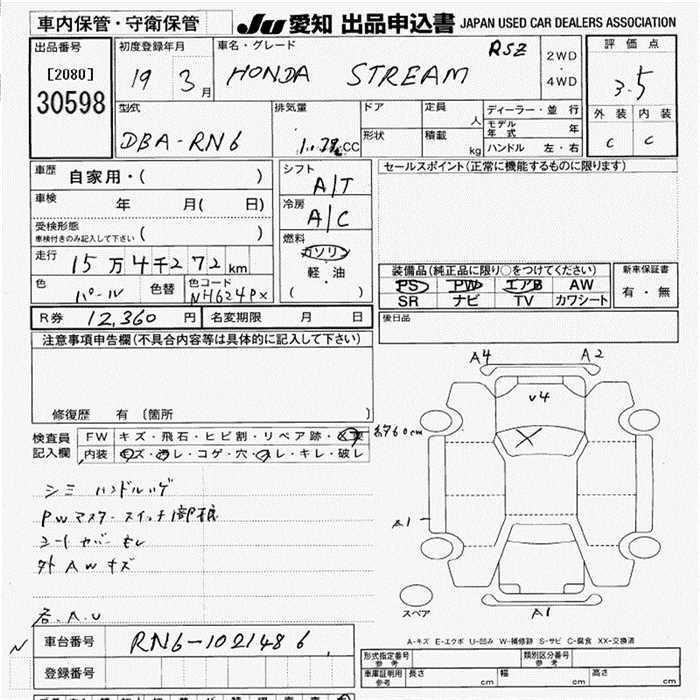 車内保管・守衛保管
JU 愛知 出品申込書 JAPAN USED CAR DEALERS ASSOCIATION
出品番号
[2080]
30598
初度登録年月
19 3月
車名・グレード
HONDA STREAM RSZ
2WD
・
4WD
評価点
3.5
外装 内装
C C
型式
DBA-RN6
排気量
CC
ドア
形状
定員
人
積載
kg
ディーラー・並行
モデル年式 年
ハンドル 左・右
車歴 自家用・( )
車検 年 月( 日)
受検形態
車検付きのみ記入して下さい ( )
走行 15万4千272km
色 パール
色替
色コード NH624PX
シフト
A/T
冷房
A/C
燃料
ガソリン
軽・油
( )
セールスポイント(正常に機能するものに限ります)
装備品(純正品に限り○をつけてください)
PS PW エアB AW
SR ナビ TV カワシート
新車保証書
有・無
R券 12,360 円 名変期限 月 日
後日品
注意事項申告欄(不具合内容等は具体的に記入して下さい)
修復歴 有 〔箇所 〕
検査員記入欄
FW キズ・飛石・ヒビ割・リペア跡・
内装 キズ・汚レ・コゲ・穴・スレ・キレ・破レ
約60cm
シミ ハンドルハゲ
PWマスタースイッチ1部損
シートカバー
外 AWキズ
A4 A2
V4
X
A1
A1
スペア
A-キズ E-エクボ U-凹み W-補修跡 S-サビ C-腐食 XX-交換済
N
車台番号 RN6-1021486
登録番号
形式指定番号
参考
類別区分番号
参考
車庫証明用
参考
長さ 幅 高さ